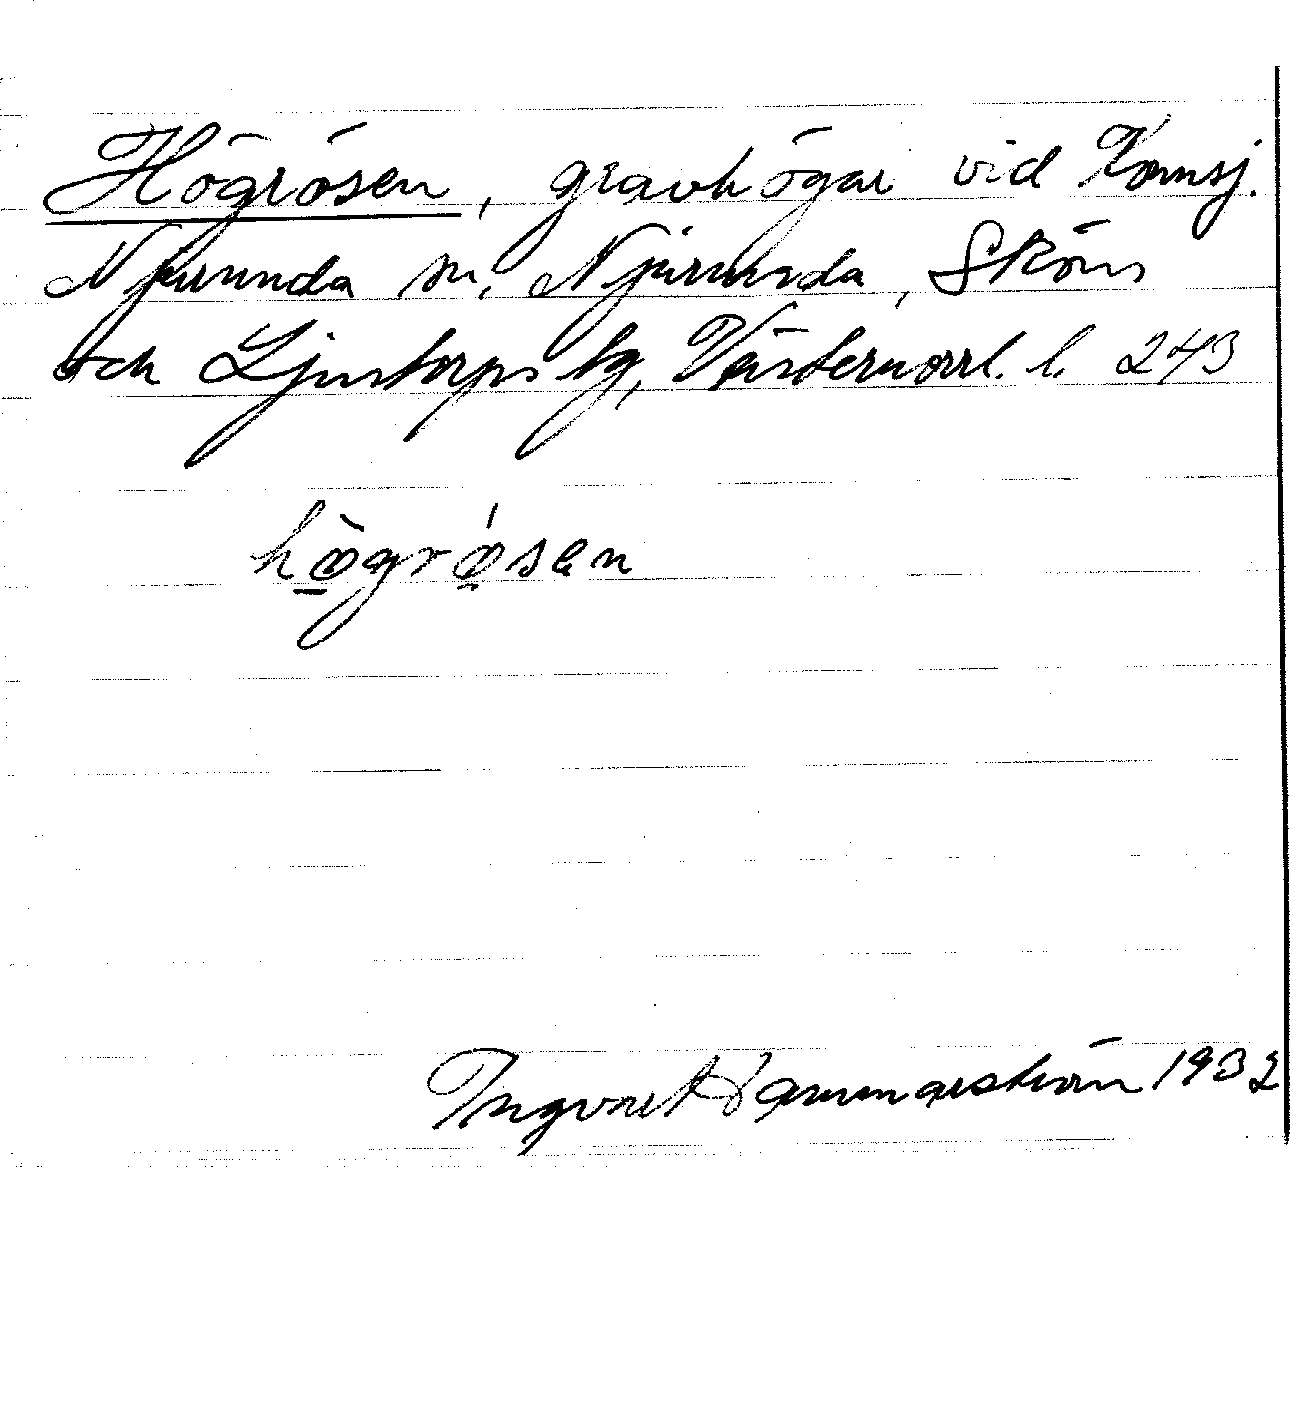 Högrösen, gravhögar vid Komsj.
Njurunda sn, Njurunda, Sköns
och Ljustorps tg, Västernorrl. l. 243
högrösen
Ingvar Hammarström 1932